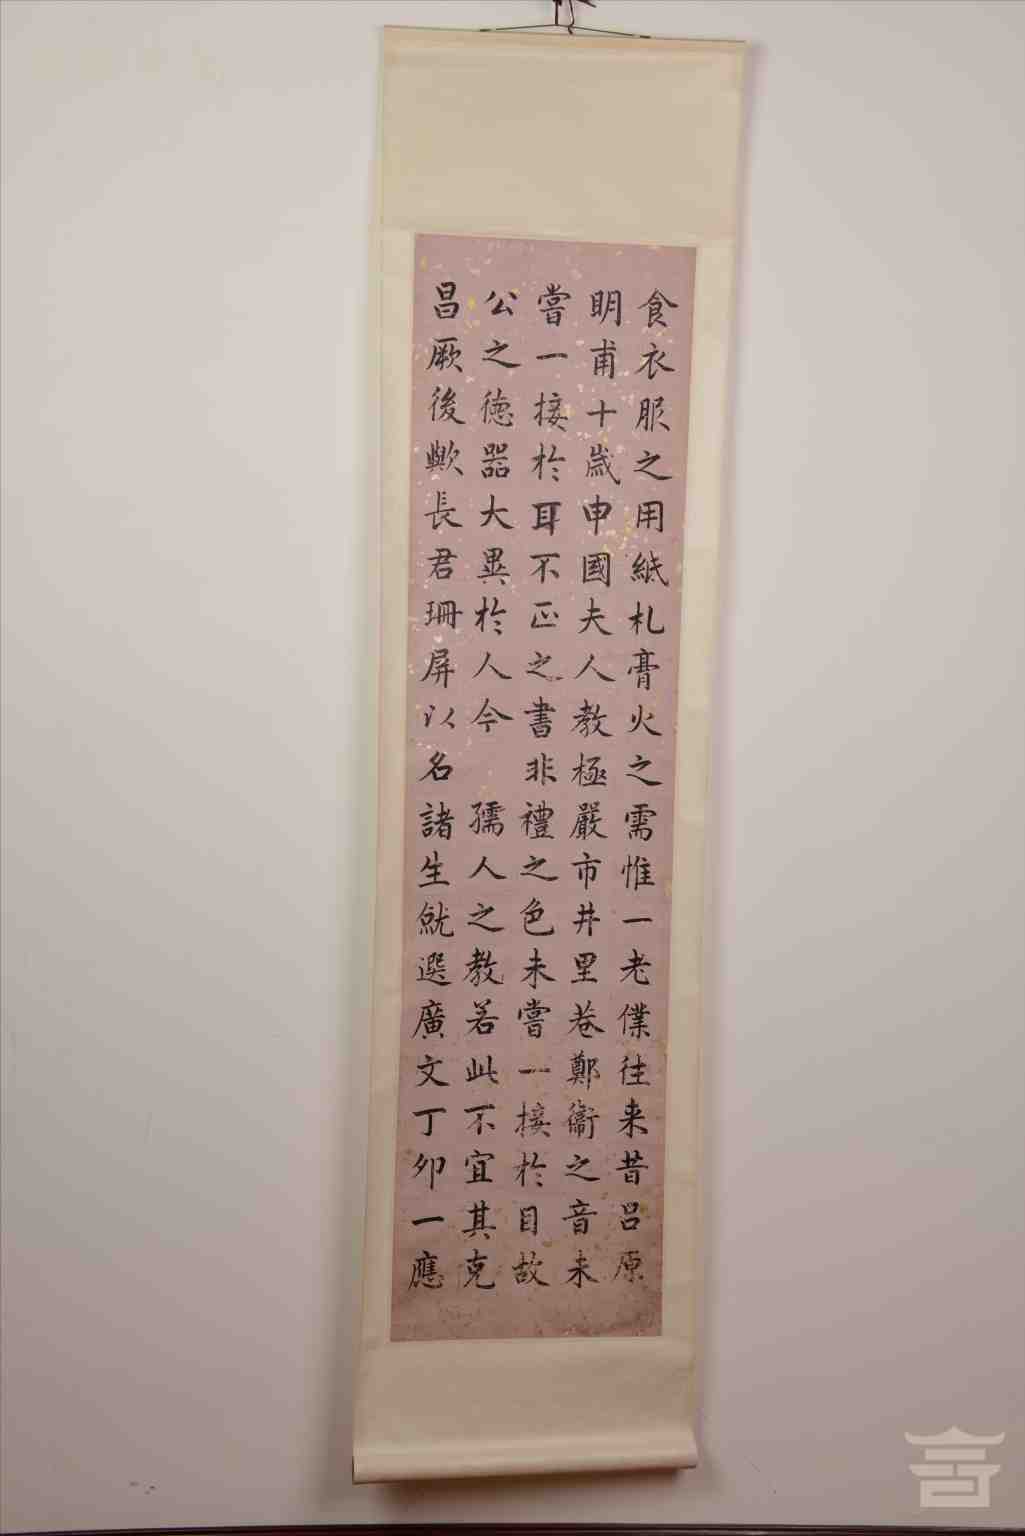 食衣服之用紙札膏火之需惟一老僕往来昔吕原
明甫十歲申國夫人教極嚴市井里巷鄭衛之音未
嘗一接於耳不正之書非禮之色未嘗一接於目故
公之德器大異於人今 孺人之教若此不宜其克
昌厥後歟長君珊屏以名諸生就選廣文丁卯一應